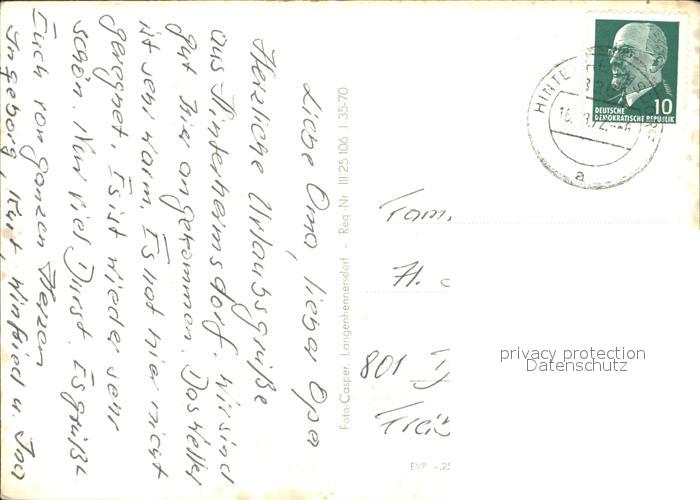 Liebe Oma, lieber Opa
Herzliche Urlaubsgrüße
aus Hinterhermsdorf. Wir sind
gut hier angekommen. Das Wetter
ist sehr warm. Es hat hier nicht
geregnet. Es ist wieder sehr
schön. Nur viel Durst. Es grüßt
Euch von ganzen Herzen
Ingeborg, Kurt, Winfried u. Ina
Foto-Casper, Langenhennersdorf - Reg.-Nr III 25 106 I 35-70
10
DEUTSCHE
DEMOKRATISCHE REPUBLIK
HINTE
a
Fam.
H.
801
EVP -,25
privacy protection
Datenschutz